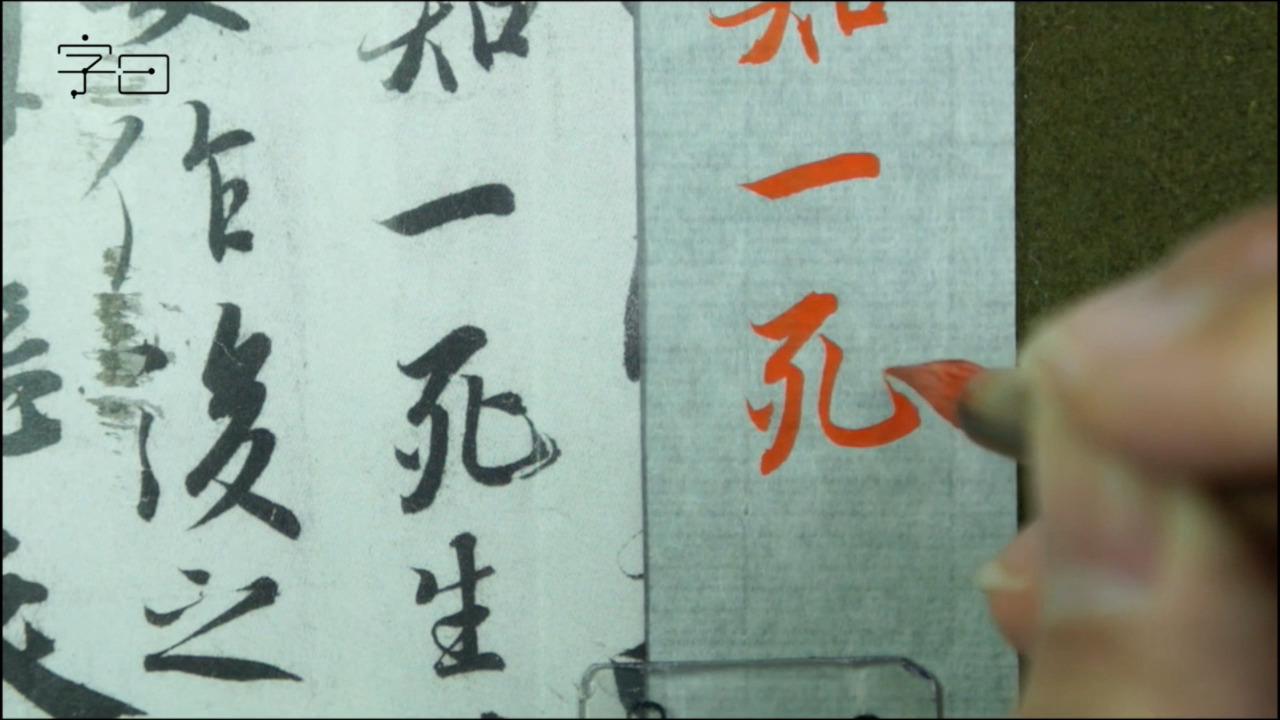 知一死
知一死生
作後之
字曰